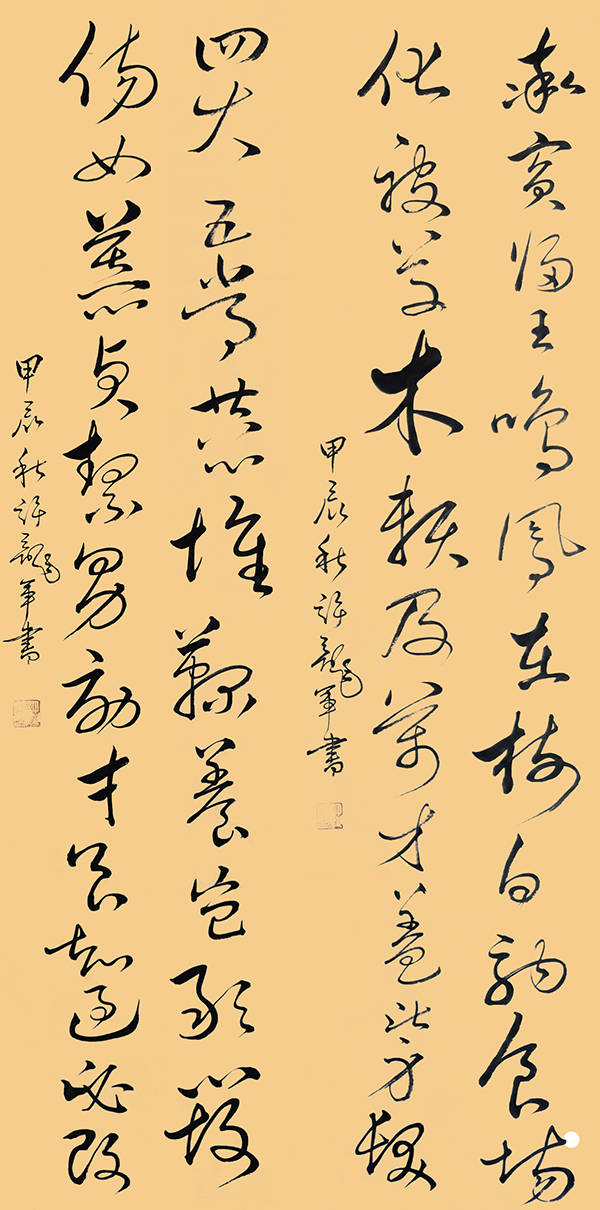 率賓歸王鳴鳳在樹白駒食場
化被草木賴及萬方蓋此身髮
甲辰秋許龍軍書
四大五常恭惟鞠養豈敢毀
傷女慕貞絜男效才良知過必改
甲辰秋許龍軍書